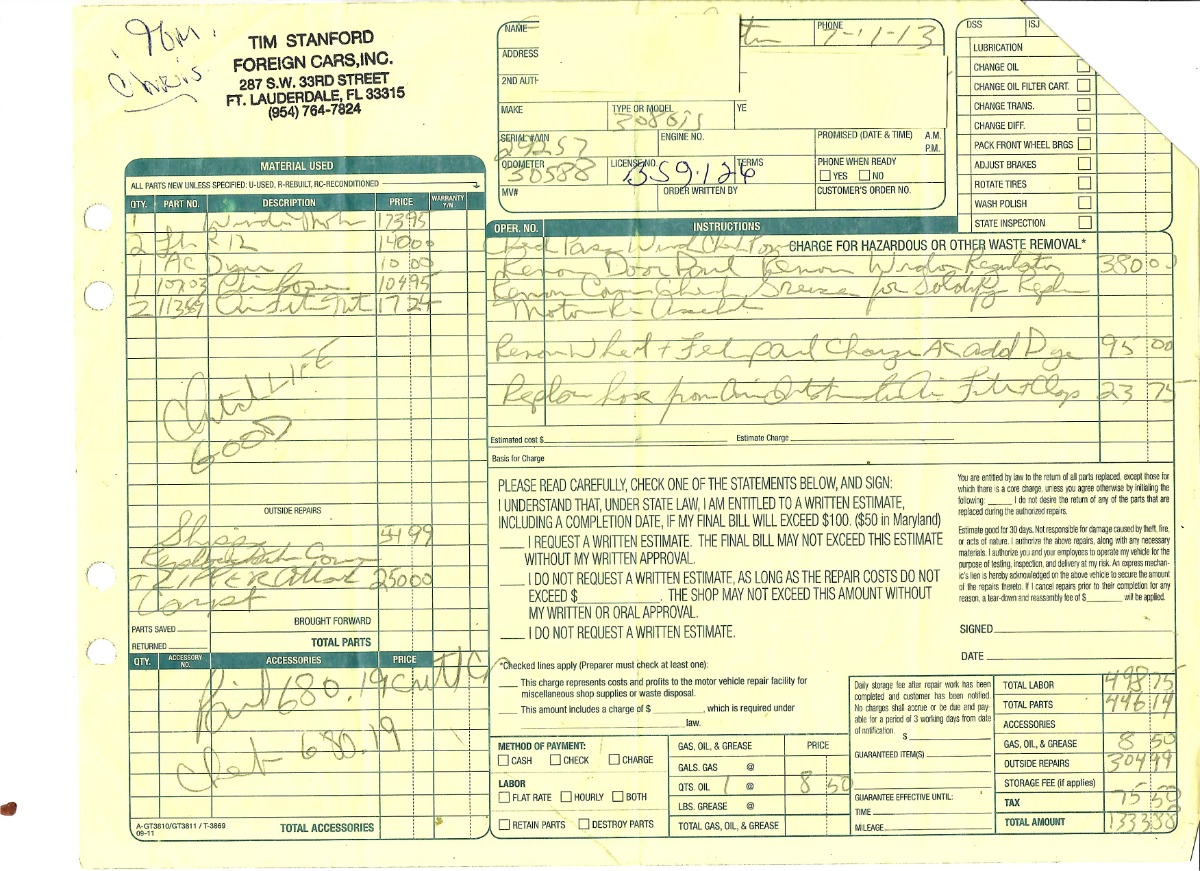 Tom
Chris
TIM STANFORD
FOREIGN CARS, INC.
287 S.W. 33RD STREET
FT. LAUDERDALE, FL 33315
(954) 764-7824
NAME
PHONE 7-11-13
ADDRESS
2ND AUTH
MAKE
TYPE OR MODEL 308GTS
YE
SERIAL #/VIN 29257
ENGINE NO.
PROMISED (DATE & TIME) A.M.
P.M.
ODOMETER 30588
LICENSE NO. 359126
TERMS
PHONE WHEN READY
YES NO
MV#
ORDER WRITTEN BY
CUSTOMER'S ORDER NO.
DSS ISJ
LUBRICATION
CHANGE OIL
CHANGE OIL FILTER CART.
CHANGE TRANS.
CHANGE DIFF.
PACK FRONT WHEEL BRGS
ADJUST BRAKES
ROTATE TIRES
WASH POLISH
STATE INSPECTION
MATERIAL USED
ALL PARTS NEW UNLESS SPECIFIED: U-USED, R-REBUILT, RC-RECONDITIONED
QTY. PART NO. DESCRIPTION PRICE WARRANTY Y/N
1 Window Motor 173 95
2 Lb R12 140 00
1 AC Dye 10 00
1 10703 Air Hose 104 95
2 11369 17 24
Clutch LIFE
GOOD
OUTSIDE REPAIRS
Shipp 54 99
Replace Dash Cover
+ ZIPPER
Carpet 250 00
PARTS SAVED
RETURNED
BROUGHT FORWARD
TOTAL PARTS
QTY. ACCESSORY NO. ACCESSORIES PRICE
680.19
680.19
A-GT3810/GT3811 / T-3869
09-11
TOTAL ACCESSORIES
OPER. NO. INSTRUCTIONS
CHARGE FOR HAZARDOUS OR OTHER WASTE REMOVAL*
Remove Door Panel Remove Window Regulator 380 00
Remove Cover Check Grease for Solidify Replace
Motor
Remove Wheel + Fender panel Charge AC add Dye 95 00
Replace hose from Air to Air Filter + Clamps 23 75
Estimated cost $ Estimate Charge
Basis for Charge
PLEASE READ CAREFULLY, CHECK ONE OF THE STATEMENTS BELOW, AND SIGN:
I UNDERSTAND THAT, UNDER STATE LAW, I AM ENTITLED TO A WRITTEN ESTIMATE,
INCLUDING A COMPLETION DATE, IF MY FINAL BILL WILL EXCEED $100. ($50 in Maryland)
I REQUEST A WRITTEN ESTIMATE. THE FINAL BILL MAY NOT EXCEED THIS ESTIMATE
WITHOUT MY WRITTEN APPROVAL.
I DO NOT REQUEST A WRITTEN ESTIMATE, AS LONG AS THE REPAIR COSTS DO NOT
EXCEED $ . THE SHOP MAY NOT EXCEED THIS AMOUNT WITHOUT
MY WRITTEN OR ORAL APPROVAL.
I DO NOT REQUEST A WRITTEN ESTIMATE.
*Checked lines apply (Preparer must check at least one):
This charge represents costs and profits to the motor vehicle repair facility for
miscellaneous shop supplies or waste disposal.
This amount includes a charge of $ , which is required under
law.
You are entitled by law to the return of all parts replaced, except those for
which there is a core charge, unless you agree otherwise by initialing the
following: I do not desire the return of any of the parts that are
replaced during the authorized repairs.
Estimate good for 30 days. Not responsible for damage caused by theft, fire,
or acts of nature. I authorize the above repairs, along with any necessary
materials. I authorize you and your employees to operate my vehicle for the
purpose of testing, inspection, and delivery at my risk. An express mechan-
ic's lien is hereby acknowledged on the above vehicle to secure the amount
of the repairs thereto. If I cancel repairs prior to their completion for any
reason, a tear-down and reassembly fee of $ will be applied.
SIGNED
DATE
METHOD OF PAYMENT:
CASH CHECK CHARGE
LABOR
FLAT RATE HOURLY BOTH
RETAIN PARTS DESTROY PARTS
GAS, OIL, & GREASE PRICE
GALS. GAS @
QTS. OIL 1 @ 8 50
LBS. GREASE @
TOTAL GAS, OIL, & GREASE
Daily storage fee after repair work has been
completed and customer has been notified.
No charges shall accrue or be due and pay-
able for a period of 3 working days from date
of notification.
$
GUARANTEED ITEM(S)
GUARANTEE EFFECTIVE UNTIL:
TIME
MILEAGE
TOTAL LABOR 498 75
TOTAL PARTS 446 14
ACCESSORIES
GAS, OIL, & GREASE 8 50
OUTSIDE REPAIRS 304 99
STORAGE FEE (if applies)
TAX 75 50
TOTAL AMOUNT 1333 88